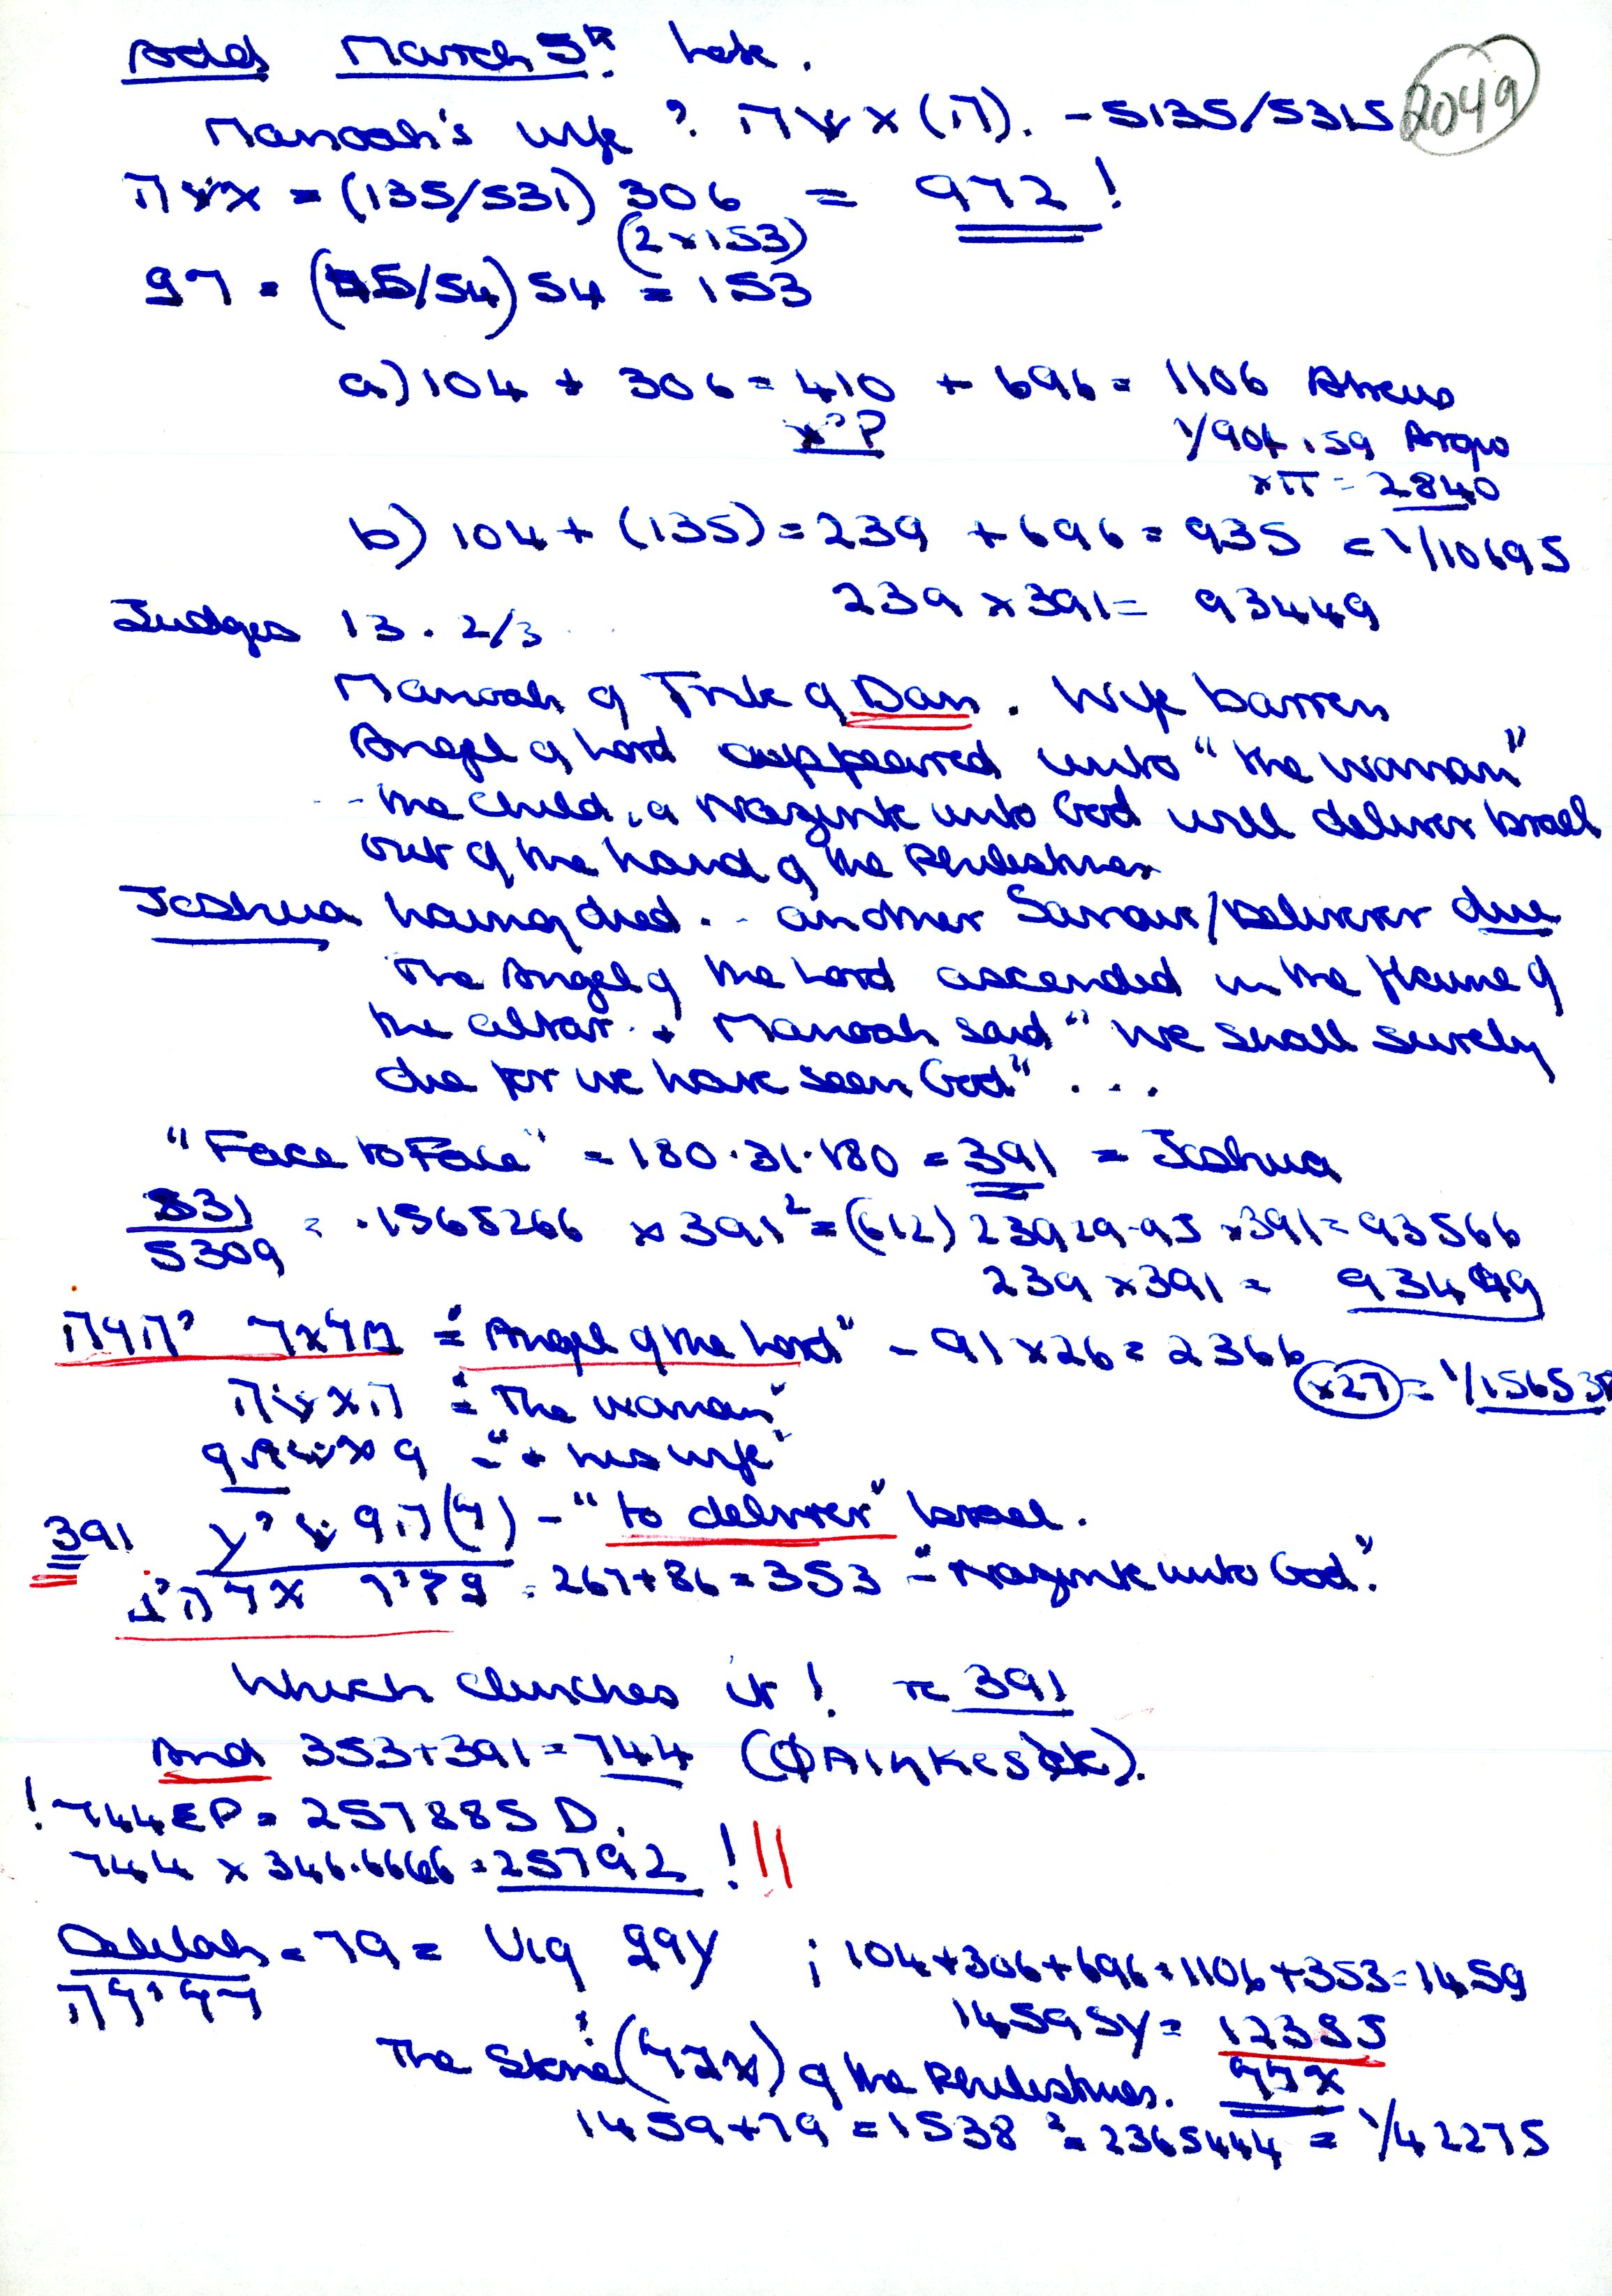 Add March 5th. Late.
2049
Manoah's wife ? השא(ה). - 5135/5315
השא = (135/531) 306 = 972 !
(2 x 153)
97 = (45/54) 54 = 153
a) 104 + 306 = 410 + 696 = 1106 Atreus
1/904.159 Argo
xπ = 2840
b) 104 + (135) = 239 + 696 = 935 = 1/10695
239 x 391 = 93449
Judges 13. 2/3
Manoah of Tribe of Dan. Wife barren
Angel of Lord appeared unto "the woman"
-- the child, a Nazirite unto God will deliver Israel
out of the hand of the Philistines
Joshua having died. - another Saviour/Deliverer due
The Angel of the Lord ascended in the flame of
the altar. + Manoah said "We shall surely
die for we have seen God" ...
"Face to Face" = 180.31.180 = 391 = Joshua
831/5309 = .1565266 x 391² = (612) 23929.95 x 391 = 93566
239 x 391 = 93449
= "Angel of the Lord" - 91 x 26 = 2366
x27 = 1/15653
= "The woman"
= "+ his wife"
391 - "to deliver" Israel.
= 267 + 86 = 353 = "Nazirite unto God".
Which clinches it ! 391
And 353 + 391 = 744
! 744 EP = 257885 D.
744 x 346.6666 = 25792 ! ||
Delilah = 79 = ; 104 + 306 + 696 = 1106 + 353 = 1459
1459 SY = 12355
The Stone ( ) of the Philistines.
1459 + 79 = 1538 ² = 2365444 = 1/42275